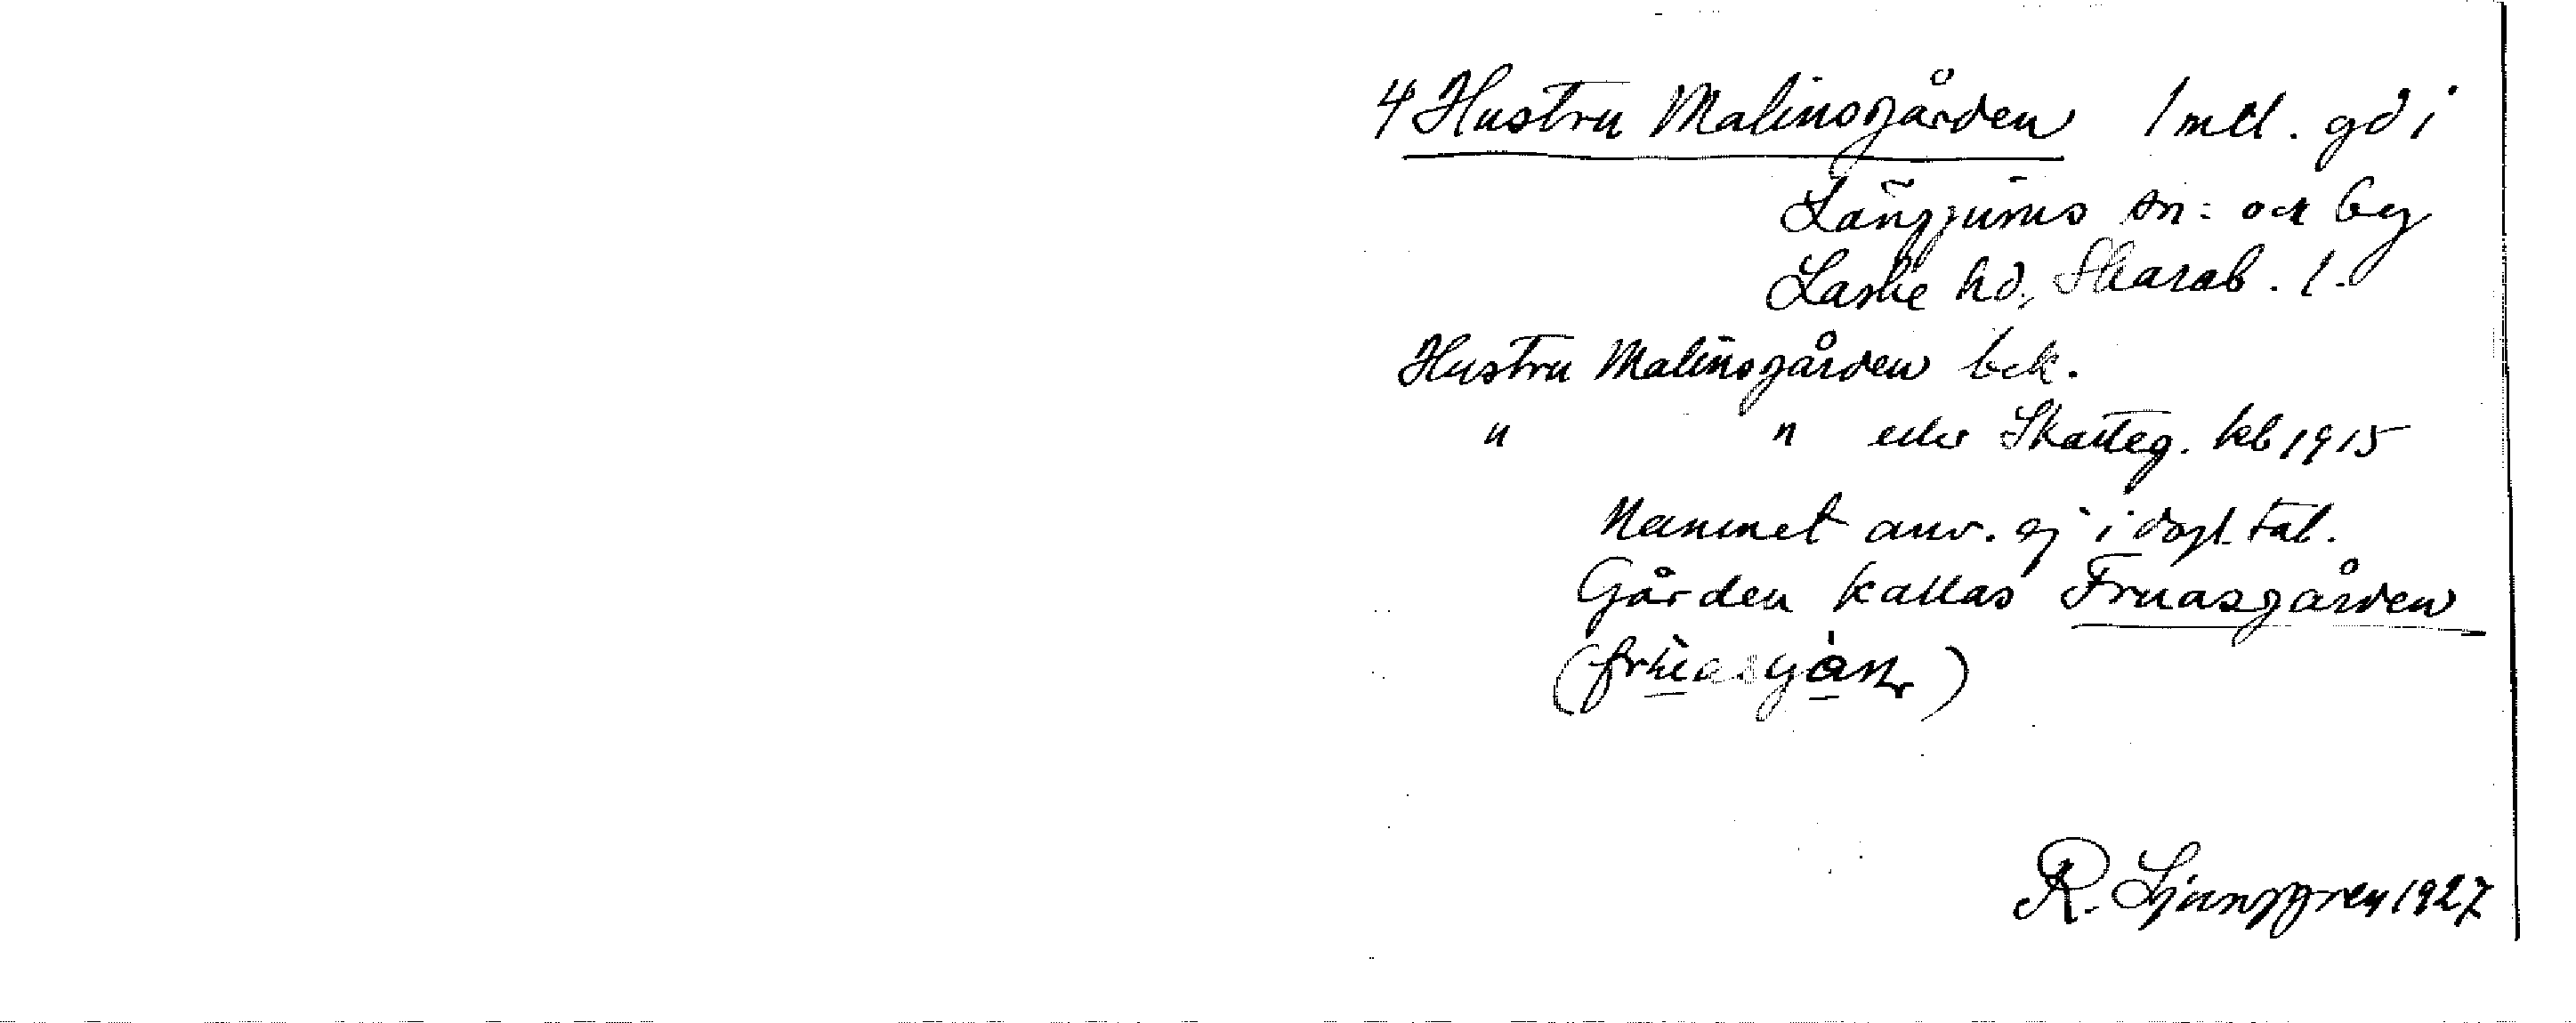 4 Hustru Malinsgården 1 mtl. gd i
Längjums sn: och by
Laske hd, Skarab. l.
Hustru Malinsgården bek.
" " eller Skatteg. kb 1915
Namnet anv. ej i dagl. tal.
Gården kallas Fruasgården
R. Ljunggren 1927